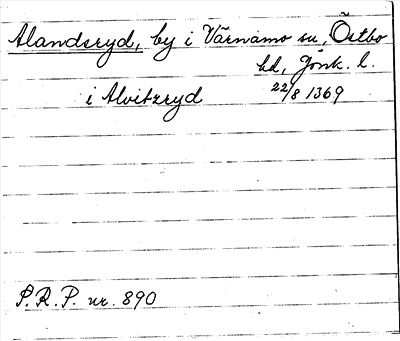 Alandsryd, by i Värnamo sn, Östbo
hd, Jönk. l.
i Alvitzryd 22/8 1369
S.R.P. nr. 890